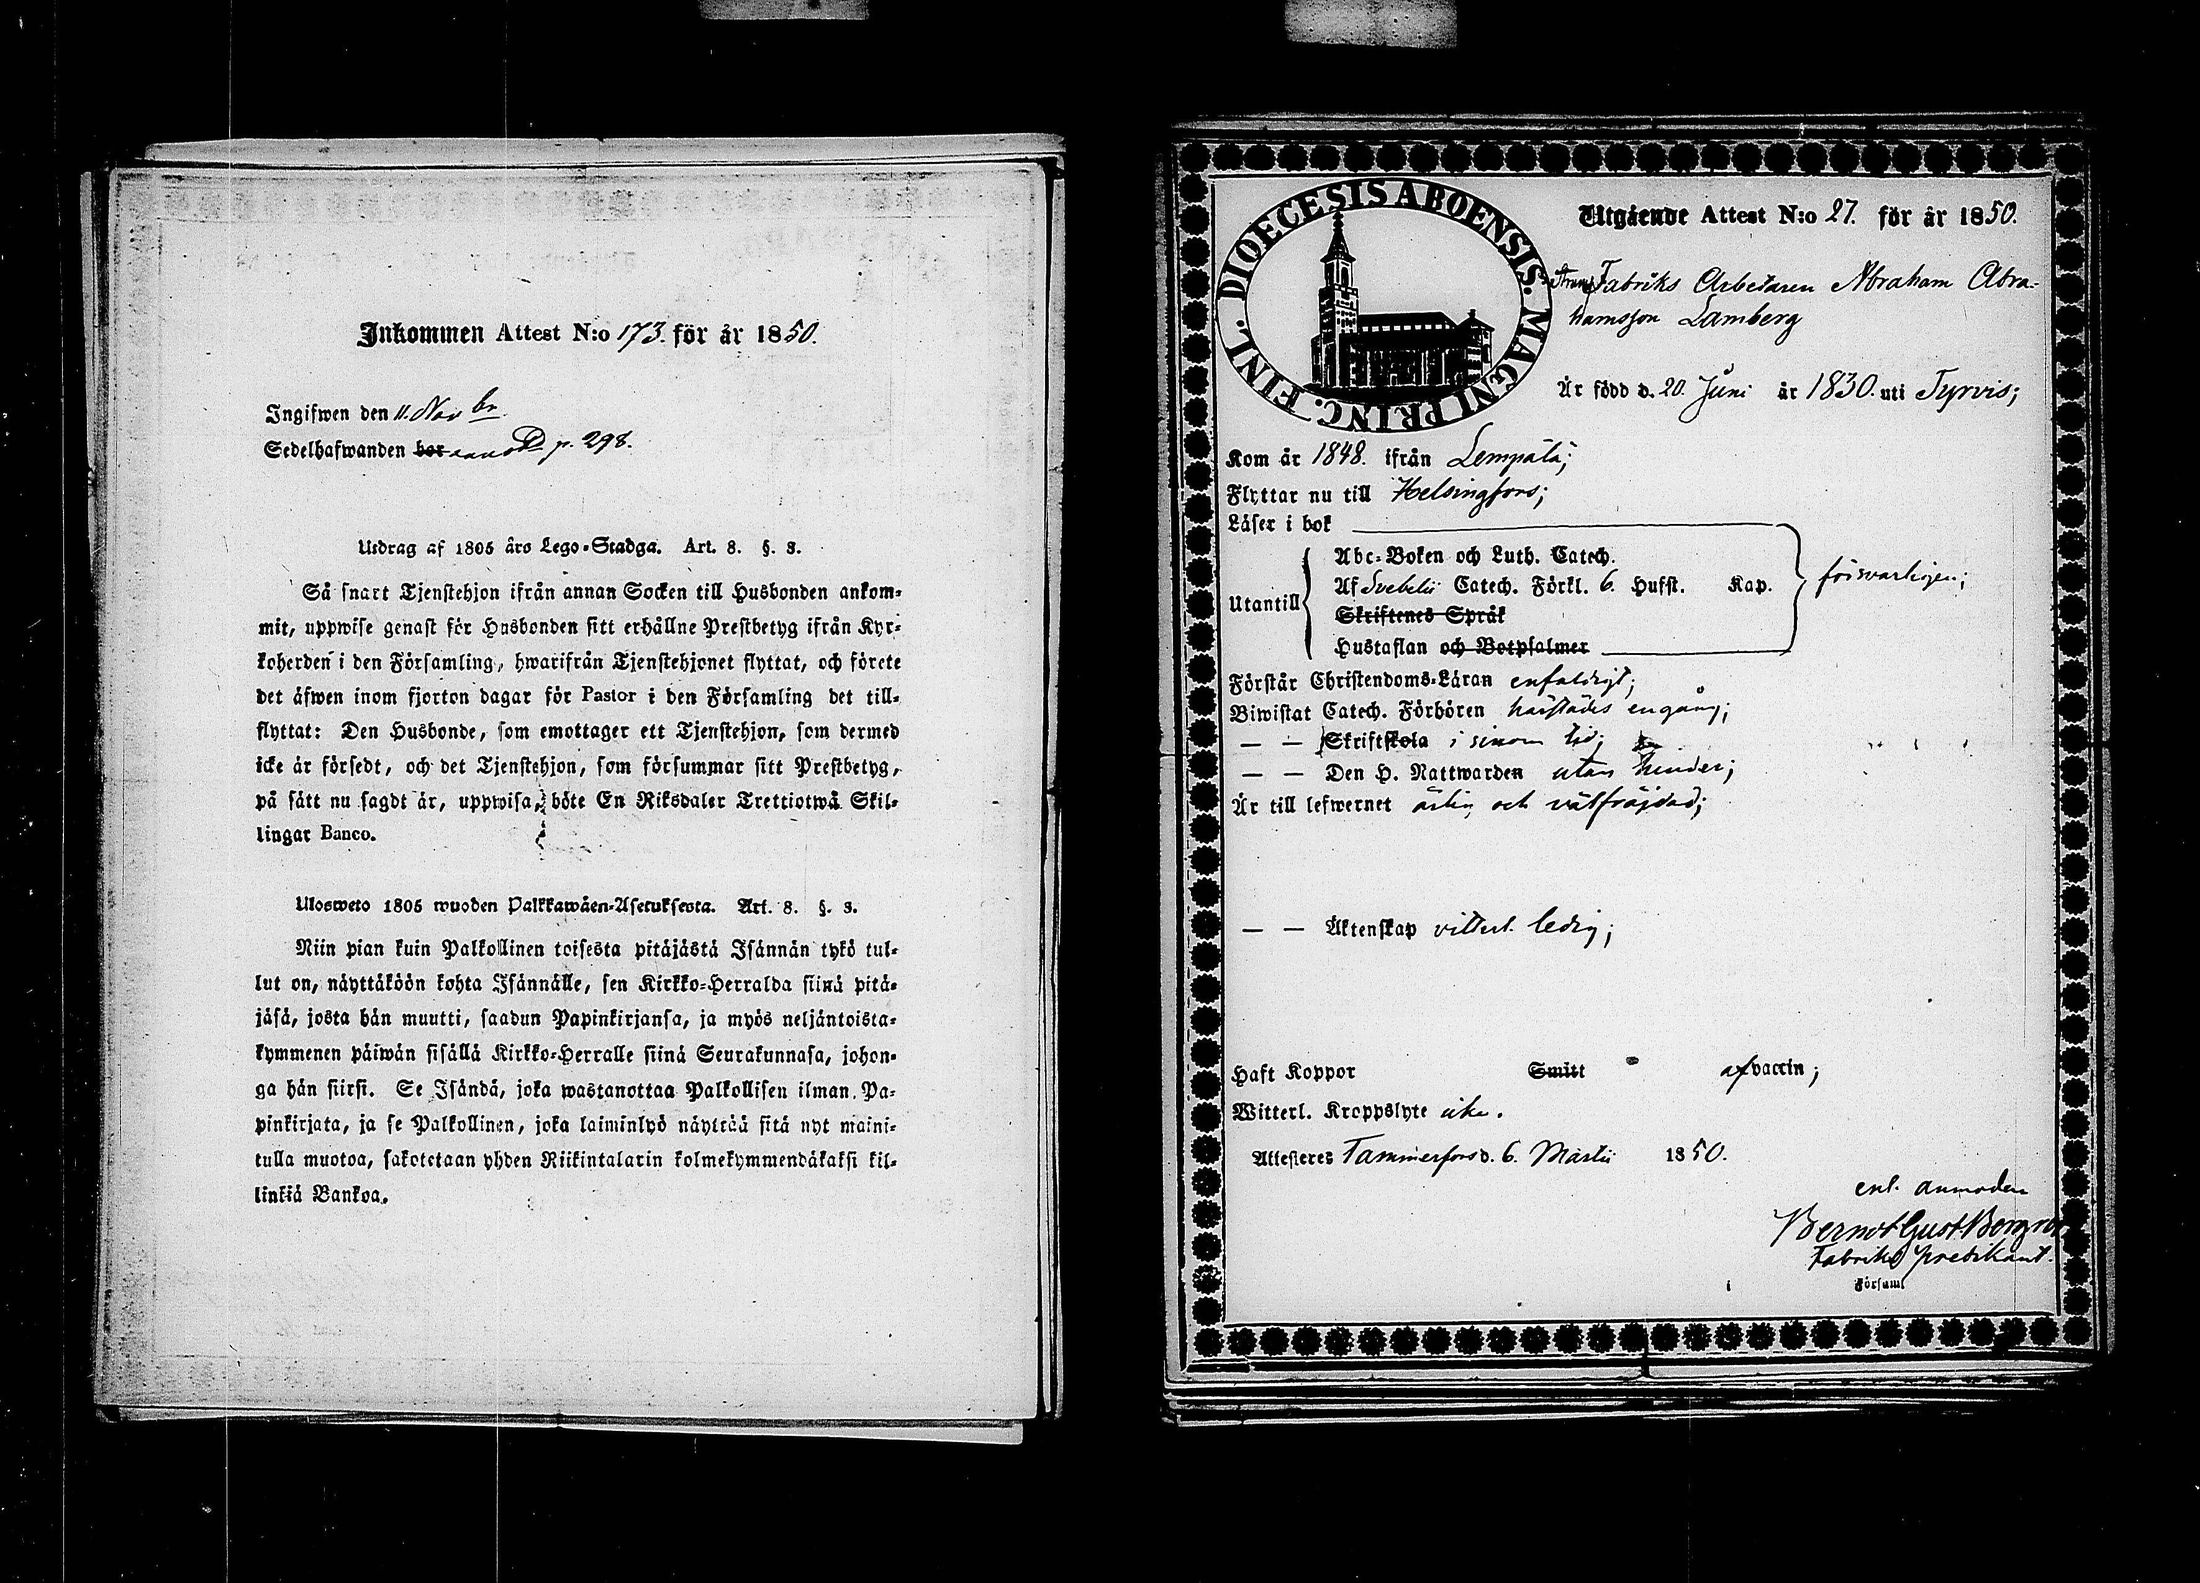 Inkommen Attest N:o 173. för år 1850.
Ingifwen den 11. Novbr.
Sedelhafwanden bor p. 298.
Utdrag af 1805 års Lego-Stadga. Art. 8. §. 3.
Så snart Tjenstehjon ifrån annan Socken till Husbonden ankom-
mit, uppwise genast för Husbonden sitt erhållne Prestbetyg ifrån Kyr-
koherden i den Församling, hwarifrån Tjenstehjonet flyttat, och förete
det äfwen inom fjorton dagar för Pastor i den Församling det till-
flyttat: Den Husbonde, som emottager ett Tjenstehjon, som dermed
icke är försedt, och det Tjenstehjon, som försummar sitt Prestbetyg,
på sätt nu sagdt är, uppwisa, böte En Riksdaler Trettiotwå Skil-
lingar Banco.
Ulosweto 1805 wuoden Palkkawäen-Asetuksesta. Art. 8. §. 3.
Niin pian kuin Palkollinen toisesta pitäjästä Isännän tykö tul-
lut on, näyttäköön kohta Isännälle, sen Kirkko-Herralda siinä pitä-
jäsä, josta hän muutti, saadun Papinkirjansa, ja myös neljäntoista-
kymmenen päiwän sisällä Kirkko-Herralle siinä Seurakunnasa, johon-
ga hän siirsi. Se Isändä, joka wastanottaa Palkollisen ilman Pa-
pinkirjata, ja se Palkollinen, joka laiminlyö näyttää sitä nyt maini-
tulla muotoa, sakotetaan yhden Riikintalarin kolmekymmendäkaksi kil-
linkiä Bankoa.
DIOECESIS ABOENSIS. MAGNI PRINC. FINL.
Utgående Attest N:o 27. för år 1850.
Fabriks Arbetaren Abraham Abra-
hamsson Lamberg
Är född d. 20. Juni år 1830. uti Tyrvis;
Kom år 1848. ifrån Lempälä;
Flyttar nu till Helsingfors;
Läser i bok
Abc-Boken och Luth. Catech.
Af Svebelii Catech. Förkl. 6. Hufst. Kap. försvarligen;
Utantill
Skriftenes Språk
Hustaflan och Botpsalmer
Förstår Christendoms-Läran enfaldigt;
Biwistat Catech. Förhören härstädes engång;
— — Skriftskola i sinom tid;
— — Den H. Nattwarden utan hinder;
Är till lefwernet ärlig och välfräjdad;
— — Äktenskap vitterl. ledig;
Haft Koppor Smitt af vaccin;
Witterl. Kroppslyte icke.
Attesteres Tammerfors d. 6. Martii 1850.
enl. anmodan
Bernd Gust
Fabriks predikant.
i Församl